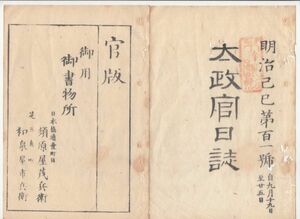 明治己巳第百一號
自九月十九日
至廿五日
太政官日誌
官版
御用
御書物所
日本橋通壹町目
須原屋茂兵衛
芝
和泉屋市兵衛